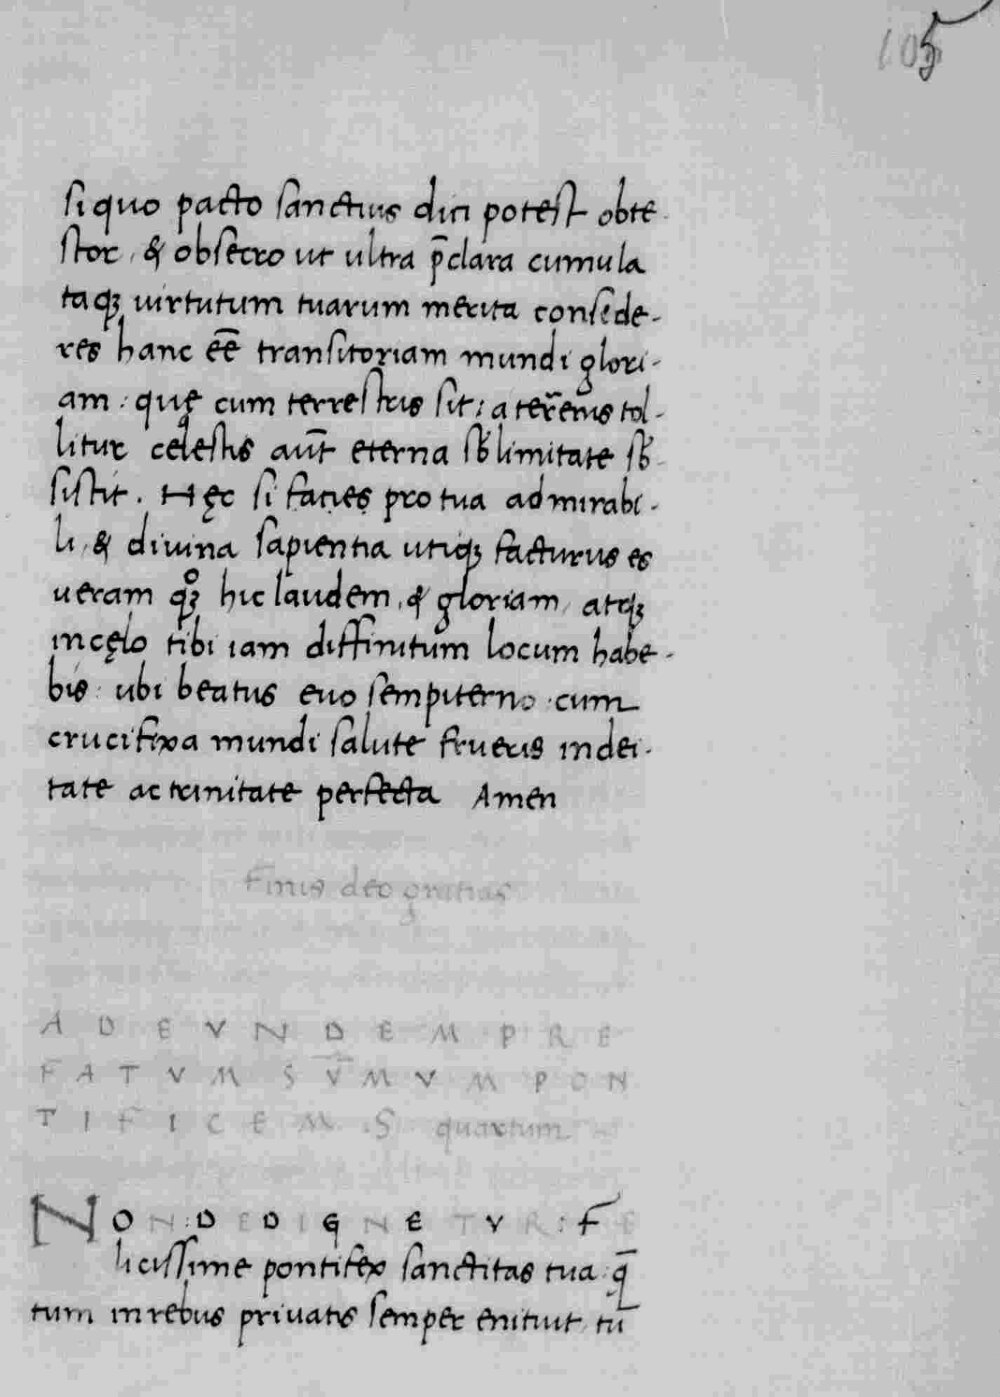 105
si quo pacto sanctius dici potest obte-
stor, & obsecro ut ultra p̄clara cumula
taq; uirtutum tuarum merita conside-
res hanc ēē transitoriam mundi glori-
am: quę cum terrestris sit; a terrenis tol-
litur celestis aūt eterna sƀlimitate sƀ-
sistit. Hęc si facies pro tua admirabi-
li, & diuina sapientia utiq; facturus es
ueram q; hic laudem, & gloriam, atq;
in cęlo tibi iam diffinitum locum habe-
bis: ubi beatus euo sempiterno cum
crucifixa mundi salute frueris in dei-
tate ac trinitate perfecta Amen
Finis deo gratias
AD EVNDEM PRE
FATVM SV̄MVM PON
TIFICEM .S. quartum
NON: DEDIGNETVR: FE
licissime pontifex sanctitas tua q̄
tum in rebus priuatis semper enituit tū